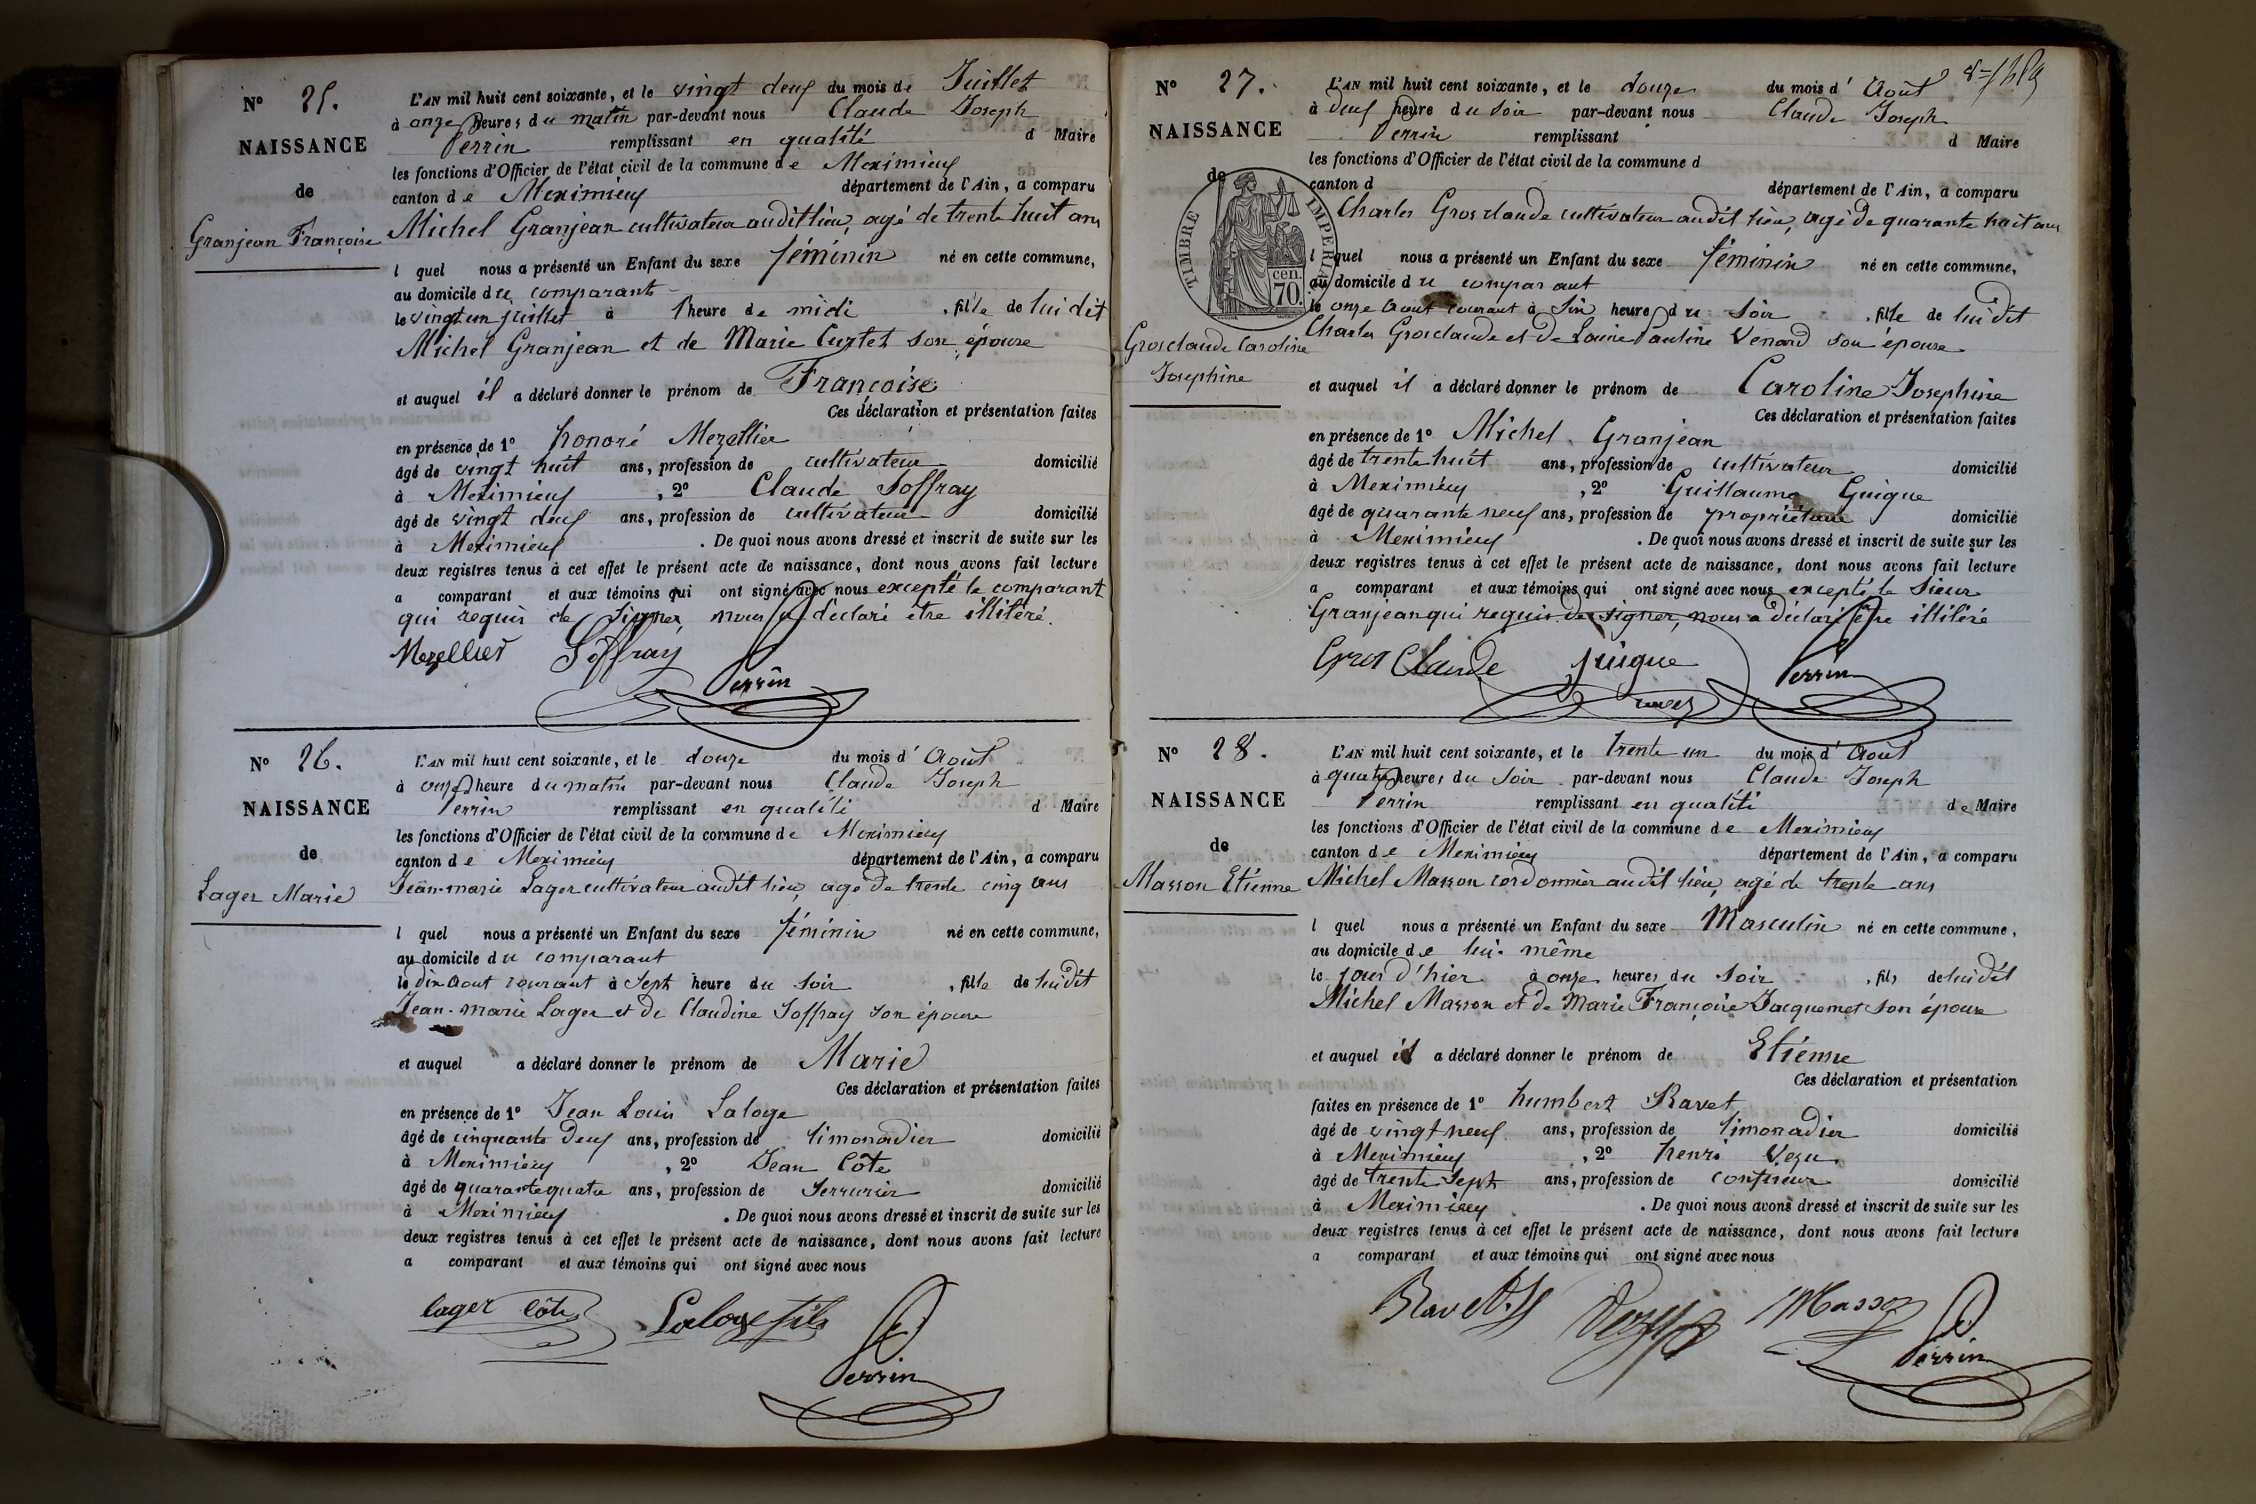 N° 25.
NAISSANCE
de
Granjean Françoise
L'AN mil huit cent soixante, et le vingt deux du mois de Juillet
à onze heures du matin par-devant nous Claude Joseph
Perrin remplissant en qualité d Maire
les fonctions d'Officier de l'état civil de la commune de Meximieux
canton de Meximieux département de l'Ain, a comparu
Michel Granjean cultivateur audit lieu, agé de trente huit ans
l quel nous a présenté un Enfant du sexe féminin né en cette commune,
au domicile du comparant
le vingt un juillet à 1 heure de midi , fille de lui dit
Michel Granjean et de Marie Curtet son épouse
et auquel il a déclaré donner le prénom de Françoise
Ces déclaration et présentation faites
en présence de 1° honoré Mezellier
âgé de vingt huit ans, profession de cultivateur domicilié
à Meximieux , 2° Claude Soffray
âgé de vingt deux ans, profession de cultivateur domicilié
à Meximieux . De quoi nous avons dressé et inscrit de suite sur les
deux registres tenus à cet effet le présent acte de naissance, dont nous avons fait lecture
a comparant et aux témoins qui ont signé avec nous excepté le comparant
qui requis de signer, nous a déclaré être illitéré.
Mezellier Soffray Perrin
N° 26.
NAISSANCE
de
Lager Marie
L'AN mil huit cent soixante, et le douze du mois d' Août
à onze heure du matin par-devant nous Claude Joseph
Perrin remplissant en qualité d Maire
les fonctions d'Officier de l'état civil de la commune de Meximieux
canton de Meximieux département de l'Ain, a comparu
Jean-marie Lager cultivateur audit lieu, agé de trente cinq ans
l quel nous a présenté un Enfant du sexe féminin né en cette commune,
au domicile du comparant
le dix Aout courant à Sept heure du soir , fille de lui dit
Jean-marie Lager et de Claudine Soffray son épouse
et auquel a déclaré donner le prénom de Marie
Ces déclaration et présentation faites
en présence de 1° Jean Louis Laloge
âgé de cinquante deux ans, profession de limonadier domicilié
à Meximieux , 2° Jean Côte
âgé de quarante quatre ans, profession de Serrurier domicilié
à Meximieux . De quoi nous avons dressé et inscrit de suite sur les
deux registres tenus à cet effet le présent acte de naissance, dont nous avons fait lecture
a comparant et aux témoins qui ont signé avec nous
lager côte Laloge fils
Perrin
N° 27.
NAISSANCE
de
TIMBRE IMPERIAL
cen.
70.
Grosclaude Caroline
Josephine
L'AN mil huit cent soixante, et le douze du mois d' Août
à deux heure du soir par-devant nous Claude Joseph
Perrin remplissant d Maire
les fonctions d'Officier de l'état civil de la commune d
canton d département de l'Ain, a comparu
Charles Grosclaude cultivateur audit lieu, agé de quarante huit ans
l quel nous a présenté un Enfant du sexe féminin né en cette commune,
au domicile du comparant
le onze Aout courant à Six heure du soir , fille de lui dit
Charles Grosclaude et de Louise Pauline Venard son épouse
et auquel il a déclaré donner le prénom de Caroline Josephine
Ces déclaration et présentation faites
en présence de 1° Michel Granjean
âgé de trente huit ans, profession de cultivateur domicilié
à Meximieux , 2° Guillaume Guigue
âgé de quarante neuf ans, profession de propriétaire domicilié
à Meximieux . De quoi nous avons dressé et inscrit de suite sur les
deux registres tenus à cet effet le présent acte de naissance, dont nous avons fait lecture
a comparant et aux témoins qui ont signé avec nous excepté le Sieur
Granjean qui requis de signer, nous a déclaré être illitéré
Gros Claude guigue Perrin
N° 28.
NAISSANCE
de
Masson Etienne
L'AN mil huit cent soixante, et le trente un du mois d' Août
à quatre heures du soir par-devant nous Claude Joseph
Perrin remplissant en qualité de Maire
les fonctions d'Officier de l'état civil de la commune de Meximieux
canton de Meximieux département de l'Ain, a comparu
Michel Masson cordonnier audit lieu, agé de trente ans
l quel nous a présenté un Enfant du sexe Masculin né en cette commune,
au domicile de lui-même
le jour d'hier à onze heures du soir , fils de lui dit
Michel Masson et de Marie Françoise Jacquemet son épouse
et auquel il a déclaré donner le prénom de Etienne
Ces déclaration et présentation
faites en présence de 1° humbert Ravet
âgé de vingt neuf ans, profession de limonadier domicilié
à Meximieux , 2° henri Vezu
âgé de trente Sept ans, profession de confiseur domicilié
à Meximieux . De quoi nous avons dressé et inscrit de suite sur les
deux registres tenus à cet effet le présent acte de naissance, dont nous avons fait lecture
a comparant et aux témoins qui ont signé avec nous
Ravet Masson
Perrin